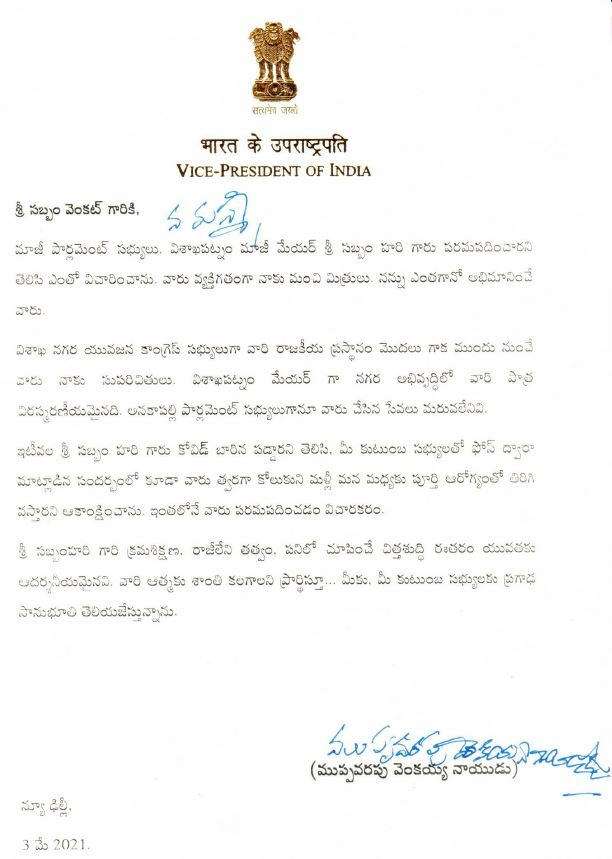 सत्यमेव जयते
भारत के उपराष्ट्रपति
VICE-PRESIDENT OF INDIA
శ్రీ సబ్బం వెంకట్ గారికి,
నమస్తే,
మాజీ పార్లమెంట్ సభ్యులు, విశాఖపట్నం మాజీ మేయర్ శ్రీ సబ్బం హరి గారు పరమపదించారని
తెలిసి ఎంతో విచారించాను. వారు వ్యక్తిగతంగా నాకు మంచి మిత్రులు. నన్ను ఎంతగానో అభిమానించే
వారు.
విశాఖ నగర యువజన కాంగ్రెస్ సభ్యులుగా వారి రాజకీయ ప్రస్థానం మొదలు గాక ముందు నుంచే
వారు నాకు సుపరిచితులు. విశాఖపట్నం మేయర్ గా నగర అభివృద్ధిలో వారి పాత్ర
చిరస్మరణీయమైనది. అనకాపల్లి పార్లమెంట్ సభ్యులుగానూ వారు చేసిన సేవలు మరువలేనివి.
ఇటీవల శ్రీ సబ్బం హరి గారు కోవిడ్ బారిన పడ్డారని తెలిసి, మీ కుటుంబ సభ్యులతో ఫోన్ ద్వారా
మాట్లాడిన సందర్భంలో కూడా వారు త్వరగా కోలుకుని మళ్లీ మన మధ్యకు పూర్తి ఆరోగ్యంతో తిరిగి
వస్తారని ఆకాంక్షించాను. ఇంతలోనే వారు పరమపదించడం విచారకరం.
శ్రీ సబ్బంహరి గారి క్రమశిక్షణ, రాజీలేని తత్వం, పనిలో చూపించే చిత్తశుద్ధి ఈతరం యువతకు
ఆదర్శనీయమైనవి. వారి ఆత్మకు శాంతి కలగాలని ప్రార్థిస్తూ... మీకు, మీ కుటుంబ సభ్యులకు ప్రగాఢ
సానుభూతి తెలియజేస్తున్నాను.
(ముప్పవరపు వెంకయ్య నాయుడు)
న్యూ ఢిల్లీ,
3 మే 2021.